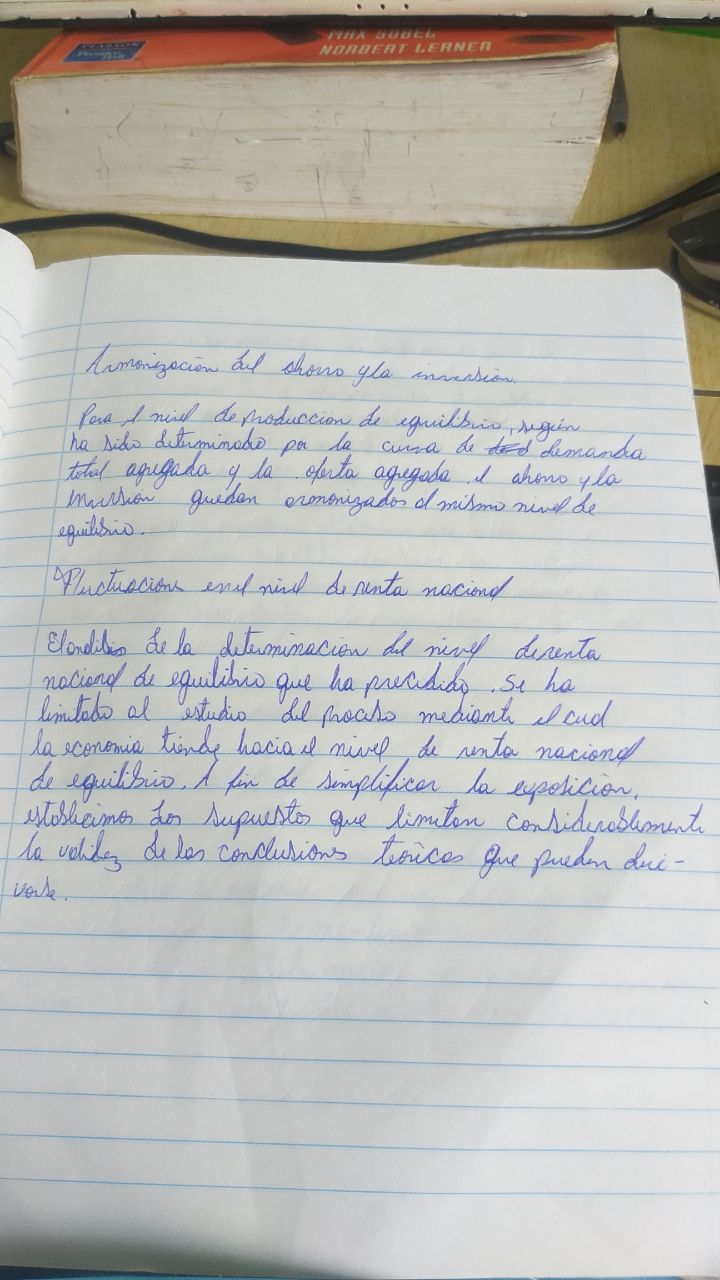 PEARSON
Prentice Hall
MAX SOBEL
NORBERT LERNER
Armonización del ahorro y la inversión.
Para el nivel de produccion de equilibrio, según
ha sido determinado por la curva de demanda
total agregada y la oferta agregada el ahorro y la
inversión quedan armonizados al mismo nivel de
equilibrio.
Fluctuaciones en el nivel de renta nacional
El analisis de la determinacion del nivel de renta
nacional de equilibrio que ha precedido. Se ha
limitado al estudio del proceso mediante el cual
la economia tiende hacia el nivel de renta nacional
de equilibrio. A fin de simplificar la exposición,
establecimos dos supuestos que limitan considerablemente
la validez de las conclusiones teóricas que pueden deri-
varse.